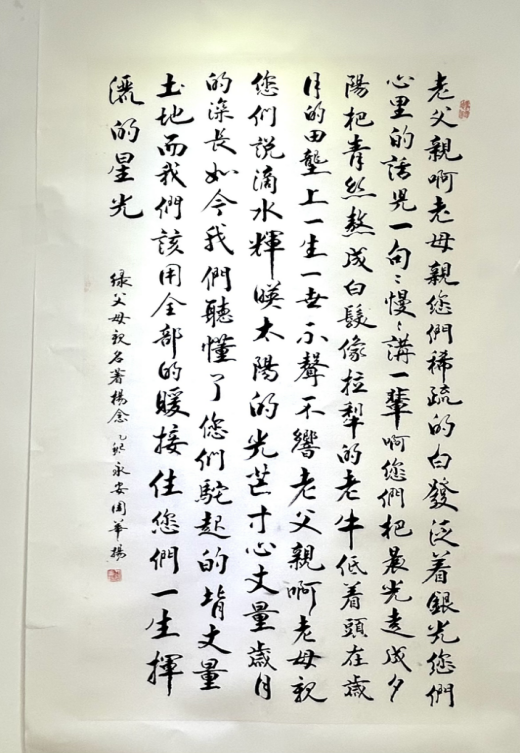 老父親啊老母親您們稀疏的白發泛着銀光您們
心里的話兒一句〻慢〻講一輩啊您們把晨光走成夕
陽把青絲熬成白髮像拉犁的老牛低着頭在歲
月的田壟上一生一世不聲不響老父親啊老母親
您們說滴水輝映太陽的光芒寸心丈量歲月
的深長如今我們聽懂了您們駝起的背丈量
土地而我們該用全部的暖接住您們一生揮
灑的星光
录父母親名著楊念 乙巳 永安周華楊